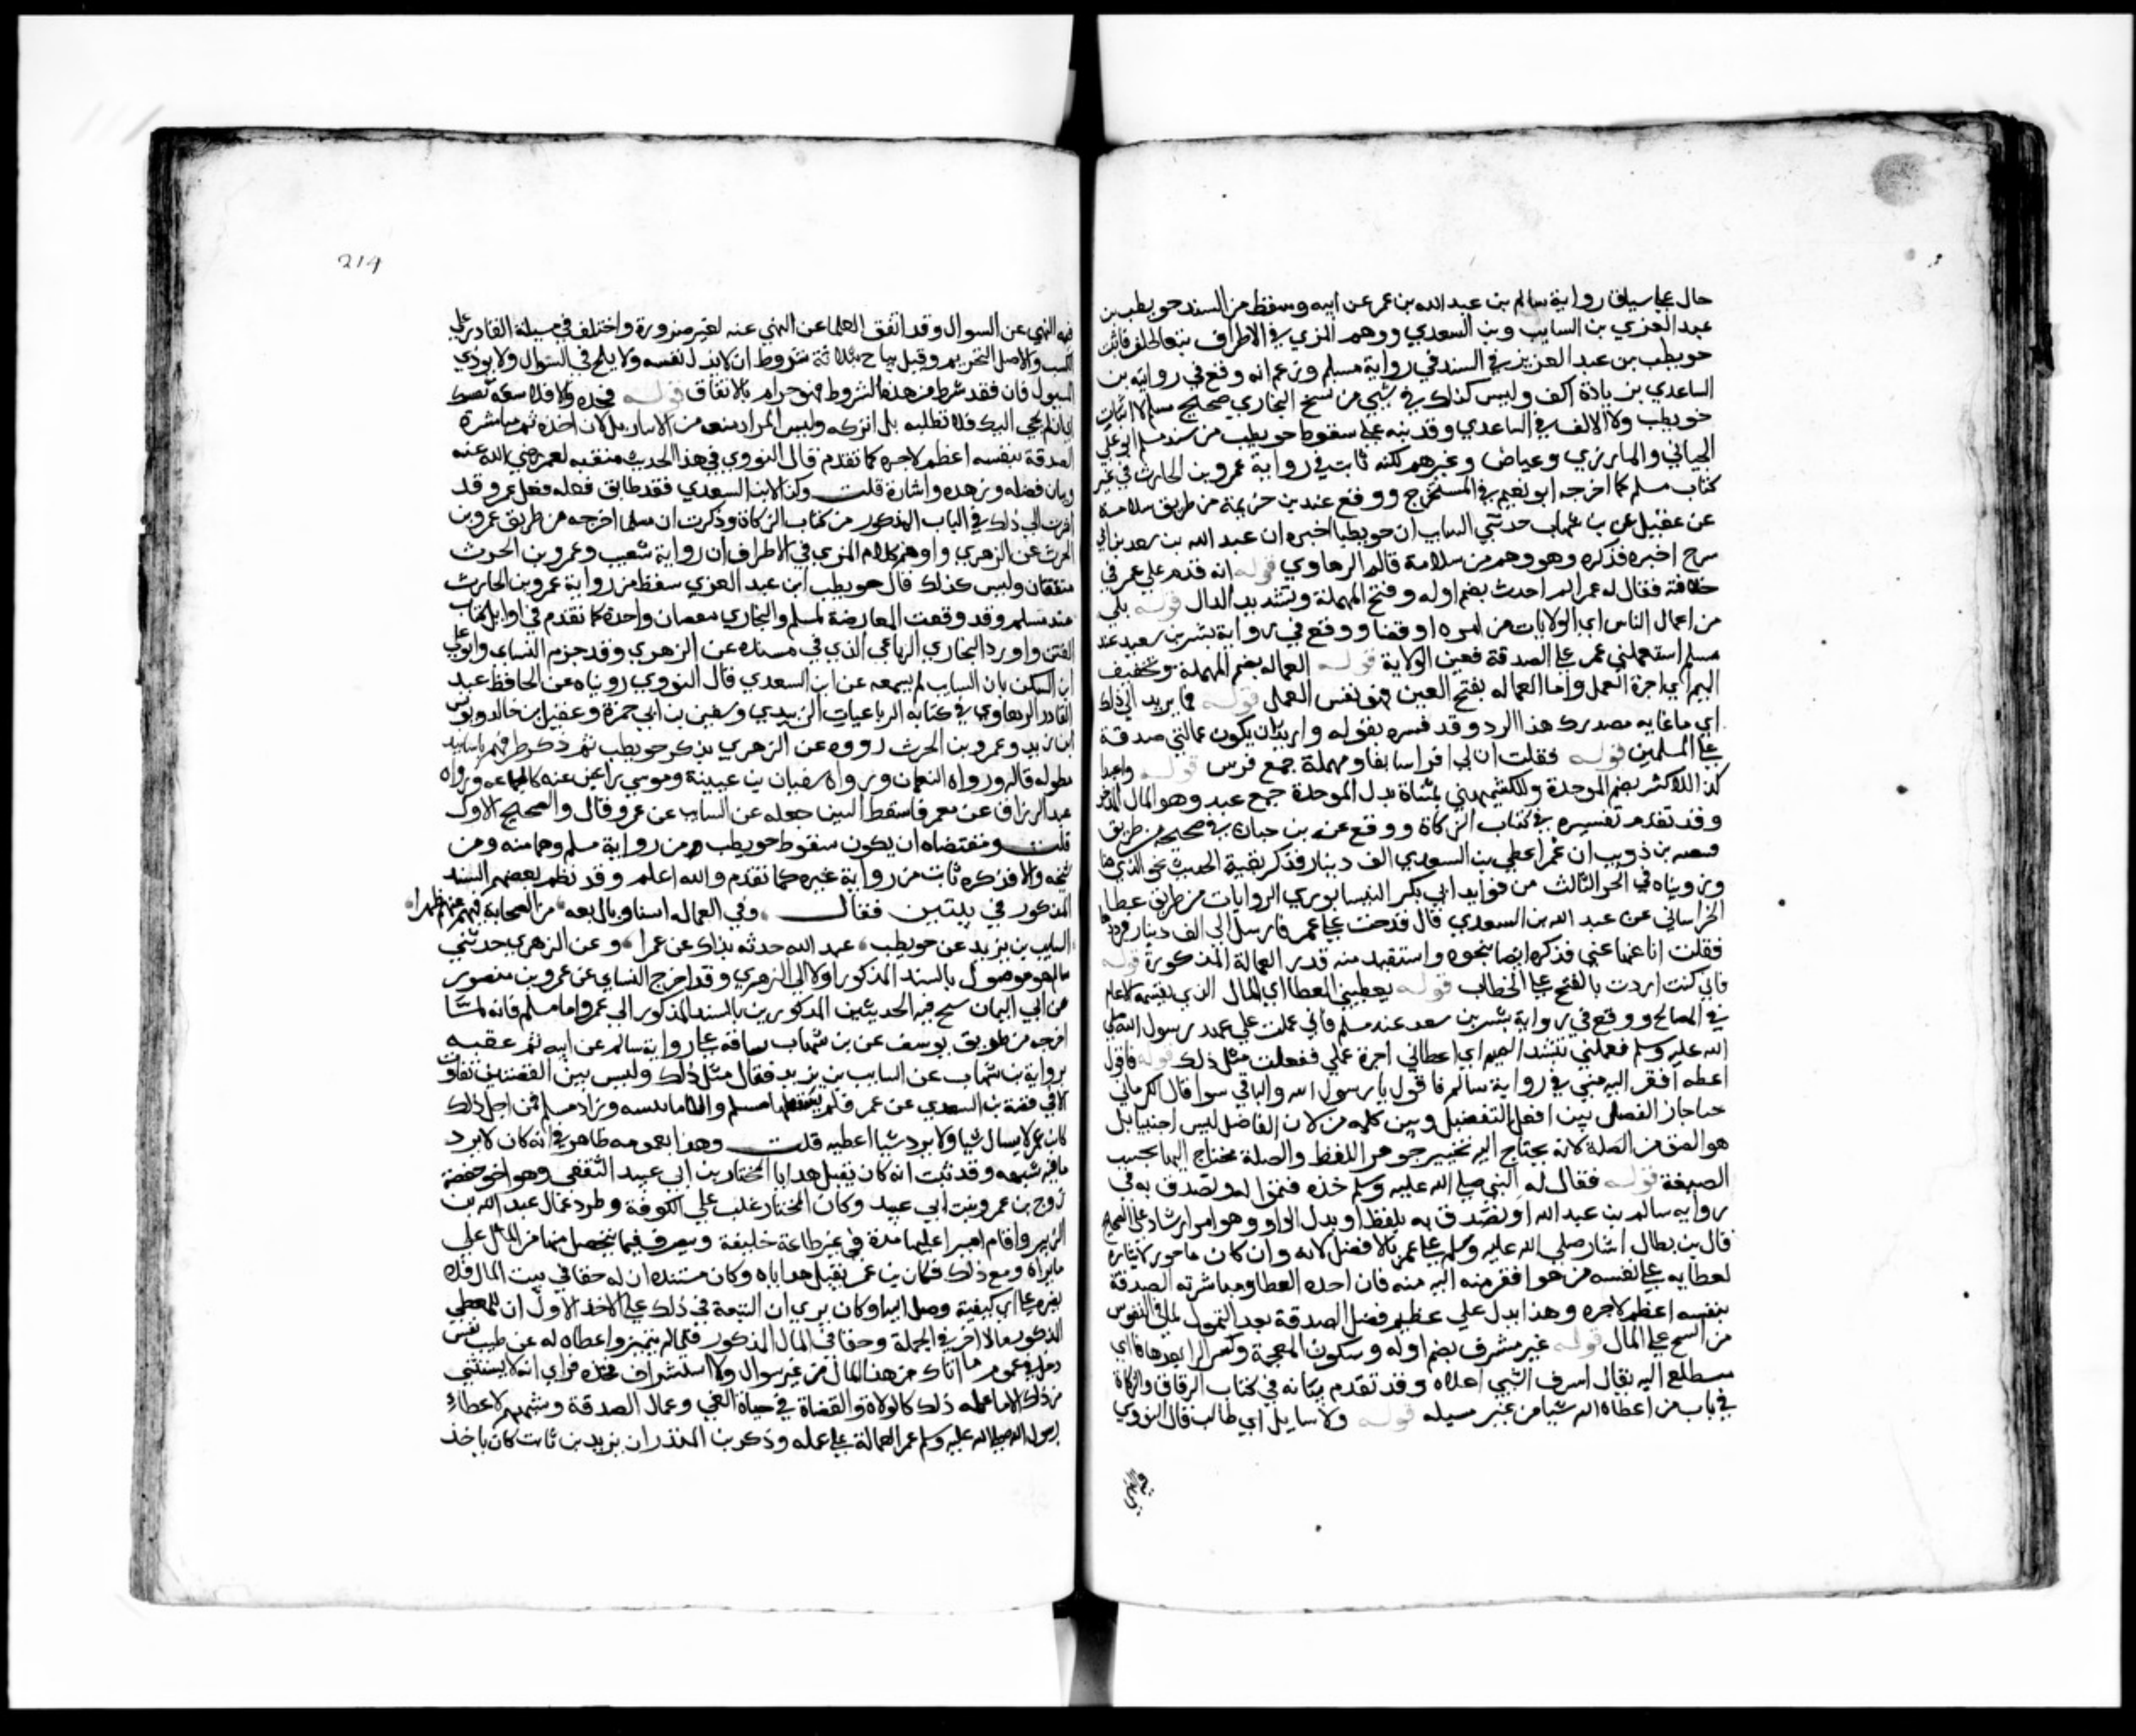 حال علي سياق رواية سالم بن عبد الله بن عمر عن ابيه وسقط من السند حويطب بن
عبد العزي بن السايب وبن السعدي ووهم المزي في الاطراف تبعا لخلف فاثبت
حويطب بن عبد العزيز في السند في رواية مسلم وزعم انه وقع في روايته بن
الساعدي بزيادة الف وليس كذلك في شي من نسخ البخاري صحيح مسلم لا اثبات
حويطب ولا الالف في الساعدي وقد نبه علي سقوط حويطب من سند مسلم ابو علي
الجياني والمازري وعياض وغيرهم لكنه ثابت في رواية عمرو بن الحارث في غير
كتاب مسلم كما اخرجه ابو نعيم في المستخرج ووقع عند بن خزيمة من طريق سلامة
عن عقيل عن بن شهاب حدثني السايب ان حويطبا اخبره ان عبد الله بن سعد بن ابي
سرح اخبره فذكره وهو وهم من سلامة قاله الرهاوي قوله انه قدم علي عمر في
خلافته فقال له عمر الم احدث بضم اوله وفتح المهملة وتشديد الدال قوله تلي
من اعمال الناس اي الولايات من امره او قضا ووقع في رواية بشر بن سعيد عند
مسلم استعملني عمر علي الصدقة فعين الولاية قوله العماله بضم المهملة وتخفيف
الميم اي اجرة العمل واما العماله بفتح العين فهو نفس العمل قوله فما يريد الي ذلك
اي ما غايه مصدرك هذا الرد وقد فسره بقوله واريد ان يكون عمالتي صدقة
علي المسلمين قوله فقلت ان لي افراسا بفا ومهملة جمع فرس قوله واعبدا
كذا للاكثر بضم الموحدة وللكشميهني بمثناة بدل الموحدة جمع عبد وهو المال المدخر
وقد تقدم تفسيره في كتاب الزكاة ووقع عند بن حبان في صحيحه من طريق
قبيصه بن ذويب ان عمر اعطي بن السعدي الف دينار فذكر بقية الحديث نحو الذي هنا
ورويناه في الجز الثالث من فوايد ابي بكر النيسابوري الزيادات من طريق عطا
الخراساني عن عبد الله بن السعدي قال قدمت علي عمر فارسل الي الف دينار فرددتها
فقلت انا عنها غني فذكره ايضا بنحوه واستفيد منه قدر العمالة المذكورة قوله
فاني كنت اردت بالفتح علي الخطاب قوله يعطيني العطا اي المال الذي يقسمه الامام
في المصالح ووقع في رواية بشر بن سعد عند مسلم فاني عملت علي عهد رسول الله صلي
الله عليه وسلم فعملني بتشديد الميم اي اعطاني اجرة عملي فقلت مثل ذلك قوله فاقول
اعطه افقر اليه مني في رواية سالم فاقول يا رسول الله والباقي سوا قال الكرماني
جاز الفصل بين افعل التفضيل وبين كلمه من لان الفاضل ليس اجنبيا بل
هو الصق من الصلة لانه يحتاج اليه بحسب جوهر اللفظ والصلة محتاج اليها بحسب
الصيغة قوله فقال له النبي صلي الله عليه وسلم خذه فتموله وتصدق به في
روايه سالم بن عبد الله او تصدق به بلفظ او بدل الواو وهو امر ارشاد علي الصحيح
قال بن بطال اشار صلي الله عليه وسلم علي عمر بالافضل لانه وان كان ماجورا بايثاره
لعطايه علي نفسه من هو افقر منه اليه منه فان اخذه العطا ومباشرته الصدقة
بنفسه اعظم لاجره وهذا يدل علي عظيم فضل الصدقة بعد التمول لما في النفوس
من الشح علي المال قوله غير مشرف بضم اوله وسكون المعجمة وكسر الرا بعدها فا اي
متطلع اليه يقال اشرف الشي اعلاه وقد تقدم بيانه في كتاب الرقاق والزكاة
في باب من اعطاه الله شيا من غير مسيله قوله ولا سايل اي طالب قال النووي
فيه النهي
214
فيه النهي عن السوال وقد اتفق العلما عن النهي عنه لغير ضرورة واختلف في مسيلة القادر علي
الكسب والاصح التحريم وقيل يباح بثلاثة شروط ان لا يذل نفسه ولا يلح في السوال ولا يوذي
المسول فان فقد شرط من هذه الشروط فهو حرام بالاتفاق قوله فخذه والا فلا تتبعه نفسك
اي ان لم يجي اليك فلا تطلبه بل اتركه وليس المراد منعه من الايثار بل لان اخذه ثم مباشرة
الصدقة بنفسه اعظم لاجره كما تقدم قال النووي في هذا الحديث منقبه لعمر رضي الله عنه
وبيان فضله وزهده وايثاره قلت وكذا لابن السعدي فقد طابق فعله فعل عمر وقد
اشرت الي ذلك في الباب المذكور من كتاب الزكاة وذكرت ان مسلما اخرجه من طريق عمرو بن
الحرث عن الزهري واوهم كلام المزي في الاطراف ان رواية شعيب وعمرو بن الحرث
متفقان وليس كذلك قال حويطب ابن عبد العزي سقط من رواية عمرو بن الحارث
عند مسلم وقد وقعت المعارضة لمسلم والبخاري موضعان واحدة كما تقدم في اوايل كتاب
الفتن واورد البخاري الرباعي الذي في مسنده عن الزهري وقد جزم النساي وابو علي
ابن السكن بان السايب لم يسمعه عن ابن السعدي قال النووي رويناه عن الحافظ عبد
القادر الرهاوي في كتابه الرباعيات الزبيدي وشعيب بن ابي حمزة وعقيل بن خالد ويونس
ابن يزيد وعمرو بن الحرث رووه عن الزهري بذكر حويطب ثم ذكر طرقهم باسانيد
مطوله قال ورواه النعمان ورواه سفيان بن عيينة وموسي بن اعين عنه كالجماعه ورواه
عبد الرزاق عن معمر فاسقط اثنين جعله عن السايب عن عمر وقال والصحيح الاول
قلت ومقتضاه ان يكون سقوط حويطب من رواية مسلم وهما منه ومن
شيخه والا فذكره ثابت من رواية غيره كما تقدم والله اعلم وقد نظم بعضهم السند
المذكور في بيتين فقال وفي العماله اسناد باربعه من الصحابة فيهم عنهم ظهرا
السايب بن يزيد عن حويطب عبد الله حدثه بذاك عن عمرا وعن الزهري حدثني
سالم هو موصول بالسند المذكور اولا الي الزهري وقد اخرج النساي عن عمرو بن منصور
عن ابي اليمان شيخه فيه الحديثين المذكورين بالسند المذكور الي عمر واما مسلم فانه لما
اخرجه من طريق يونس عن بن شهاب ساقه علي رواية سالم عن ابيه ثم عقبه
برواية بن شهاب عن السايب بن يزيد فقال مثل ذلك وليس بين القصتين تفاوت
الا في قصة بن السعدي عن عمر فلم يسقها مسلم وزاد مسلم فمن اجل ذلك
كان بن عمر لا يسال شيا ولا يرد شيا اعطيه قلت وهذا بعمومه ظاهر في انه كان لا يرد
ما فيه شبهه وقد ثبت انه كان يقبل هدايا المختار بن ابي عبيد الثقفي وهو اخو صفية
زوج بن عمر وبنت ابي عبيد وكان المختار غلب علي الكوفة وطرد عمال عبد الله بن
الزبير واقام اميرا عليها مدة في غير طاعة خليفة ويتصرف فيما يتحصل منها من المال علي
ما يراه ومع ذلك فكان بن عمر يقبل هداياه وكان مستنده ان له حقا في بيت المال فلا
يضره علي اي كيفية وصل اليه او كان يري ان التبعة في ذلك علي الاخذ الاول ان للمعطي
المذكور مالا اخر في الجملة وحقا في المال المذكور فلما لم يتميز واعطاه له عن طيب نفس
دخل في عموم ما اتاك من هذا المال من غير سوال ولا استشراف فخذه فراي انه لا يستثني
من ذلك الا ما علمه ذلك كالولاة والقضاة في جباة الفي وعمال الصدقة وشبههم لاعطاء
رسول الله صلي الله عليه وسلم عمر العمالة علي عمله وذكر بن المنذر ان يزيد بن ثابت كان ياخذ